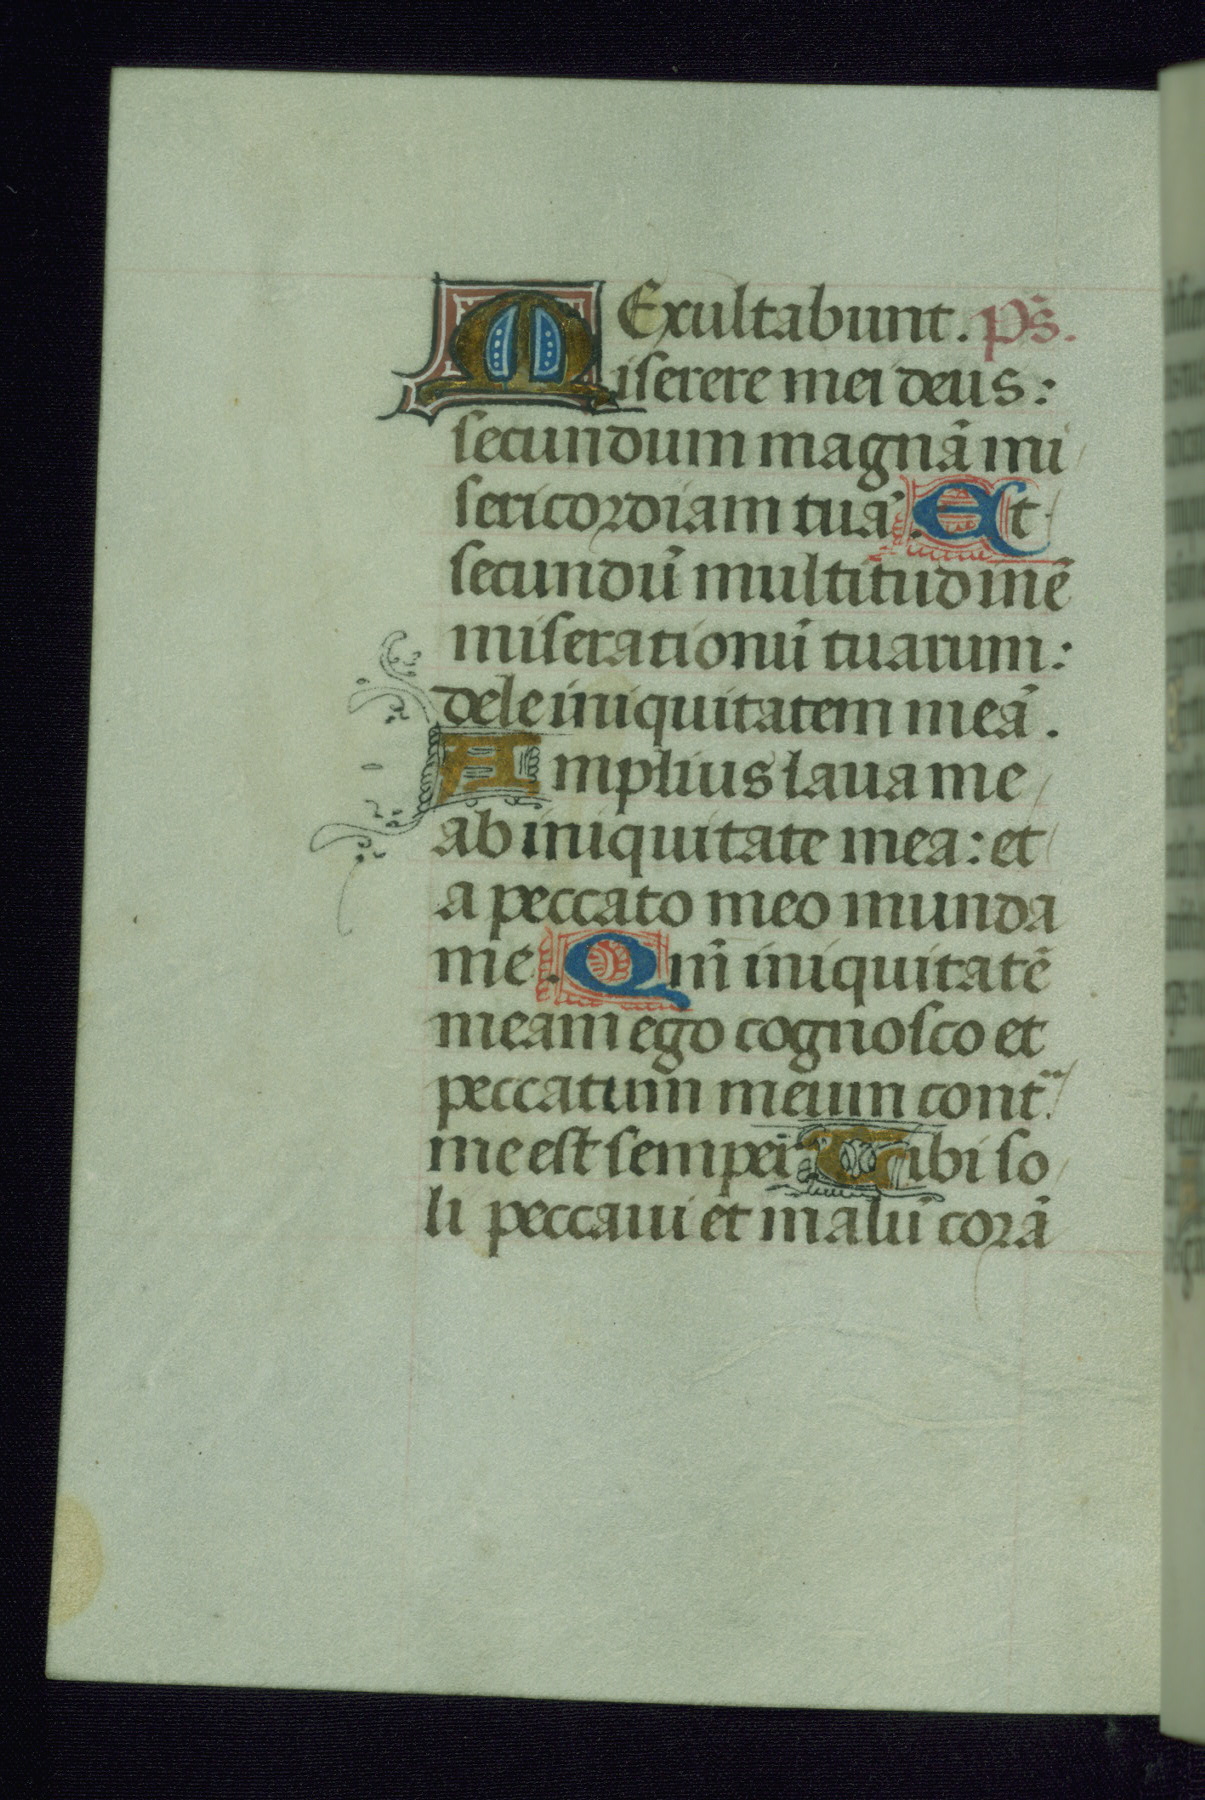 Exultabunt. Ps̃.
Miserere mei deus:
secundum magnã mi
sericordiam tuã. Et
secundũ multitudinẽ
miserationũ tuarum:
dele iniquitatem meã.
Amplius lava me
ab iniquitate mea: et
a peccato meo munda
me. Qm̃ iniquitatẽ
meam ego cognosco et
peccatum meum cont̃
me est semper. Tibi so
li peccaui et malũ corã